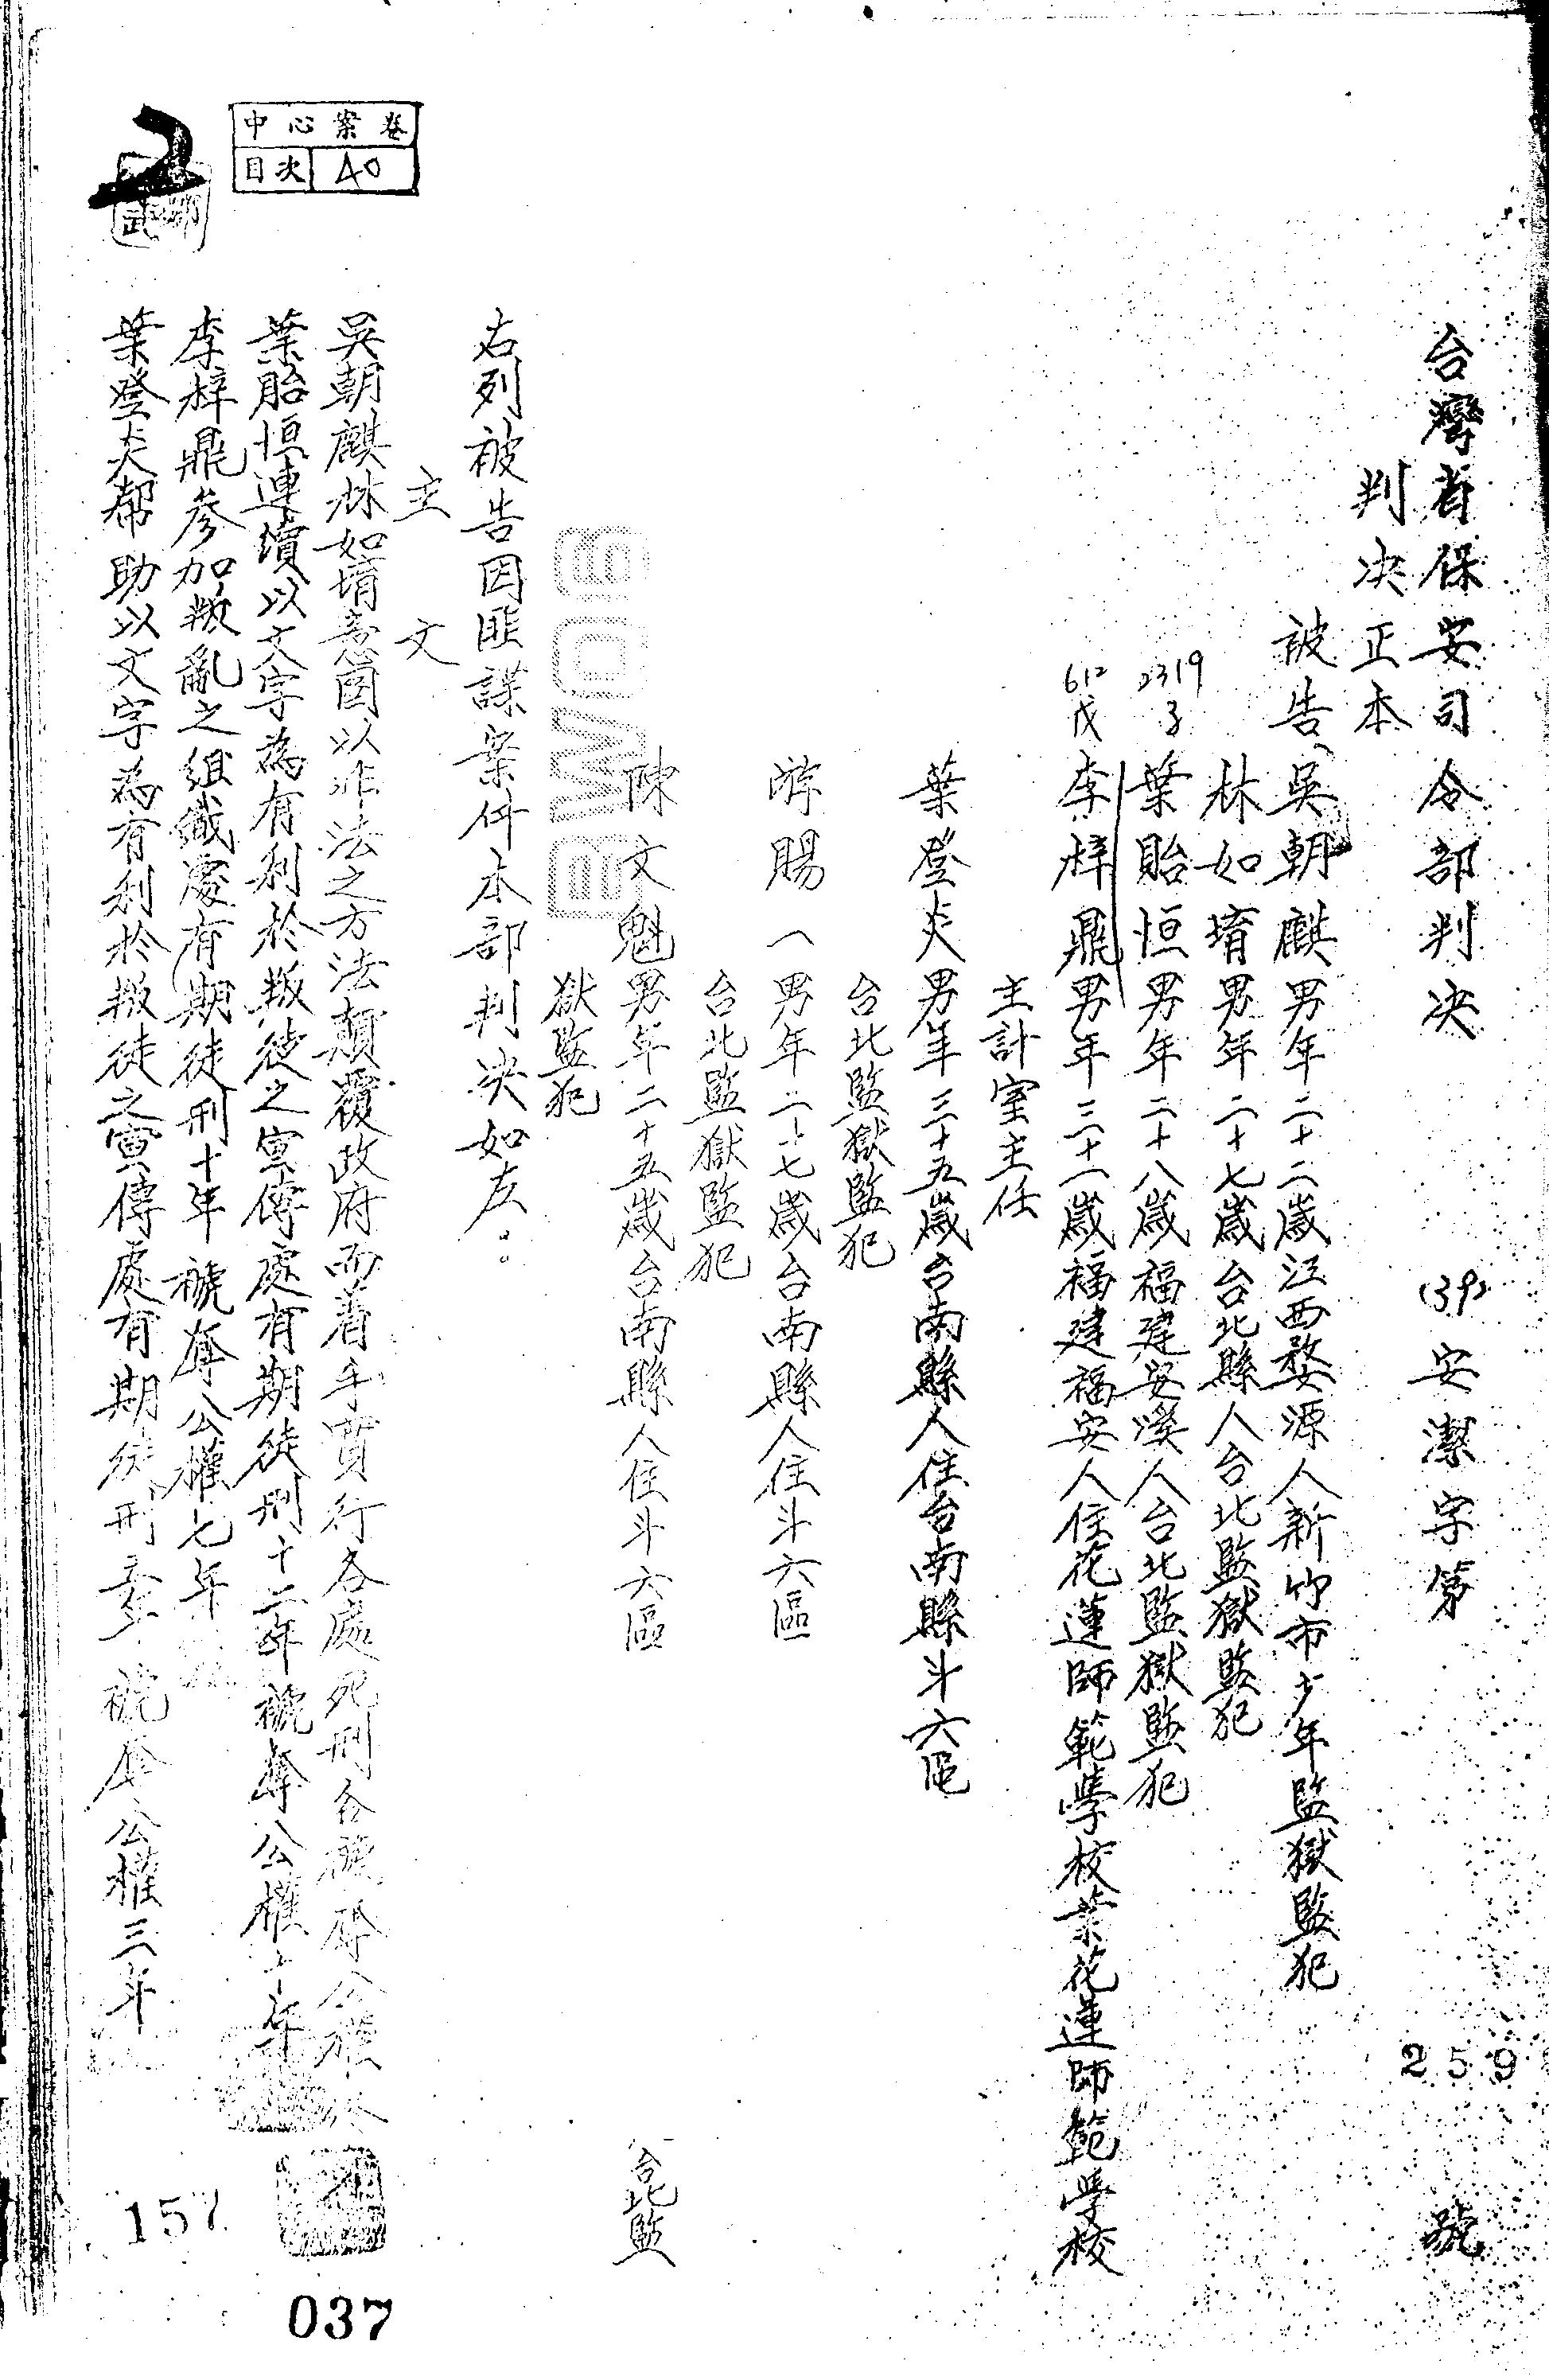 台灣省保安司令部判決 (39)安潔字第259號
判決正本
被告吳朝麒男年二十二歲江西婺源人新竹市少年監獄監犯
林如堉男年二十七歲台北縣人台北監獄監犯
2319
子
葉貽恒男年二十八歲福建安溪人台北監獄監犯
612
戊
李梓鼎男年三十一歲福建福安人住花蓮師範學校業花蓮師範學校
主計室主任
葉登炎男年三十五歲台南縣人住台南縣斗六區
台北監獄監犯
游賜一男年二十七歲台南縣人住斗六區
台北監獄監犯
陳文魁男年二十五歲台南縣人住斗六區 台北監
獄監犯
右列被告因匪諜案件本部判決如左:
主文
吳朝麒林如堉意圖以非法之方法顛覆政府而着手實行各處死刑各褫奪公權終
葉貽恒連續以文字為有利於叛徒之宣傳處有期徒刑十二年褫奪公權十年
李梓鼎參加叛亂之組織處有期徒刑十年褫奪公權七年
葉登炎幫助以文字為有利於叛徒之宣傳處有期徒刑五年褫奪公權三年
中心案卷
目次 40
157
037